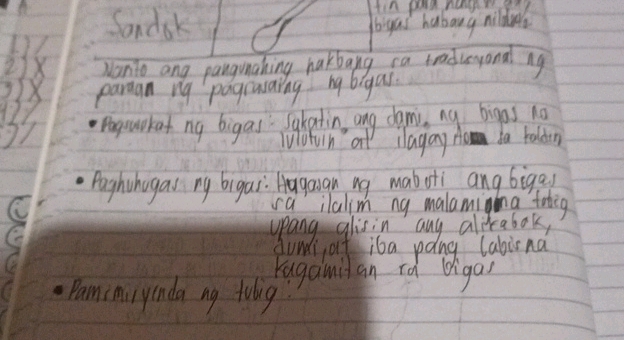 Sandok
bigas habang niluluto
Nanto ang pangunahing hakbang sa tradisyonal ng
paraan ng pagsasaing ng bigas.
• Pagsusukat ng bigas: Sukatin ang dami ng bigas na
lulutuin at ilagay sa kaldin
• Paghuhugas ng bigas: Hugasan ng mabuti ang bigas
sa ilalim ng malamig na tubig
upang alisin ang alikabok,
dumi, at iba pang labis na
kagamitan sa bigas
• ng tubig: